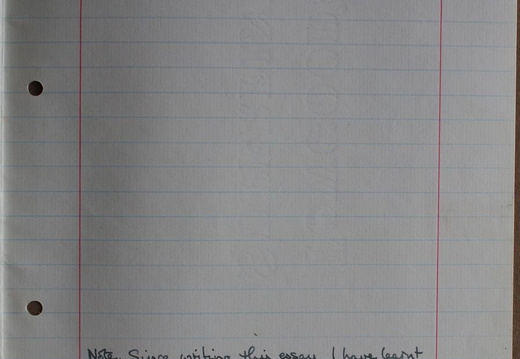 Note. Since writing this essay I have learnt